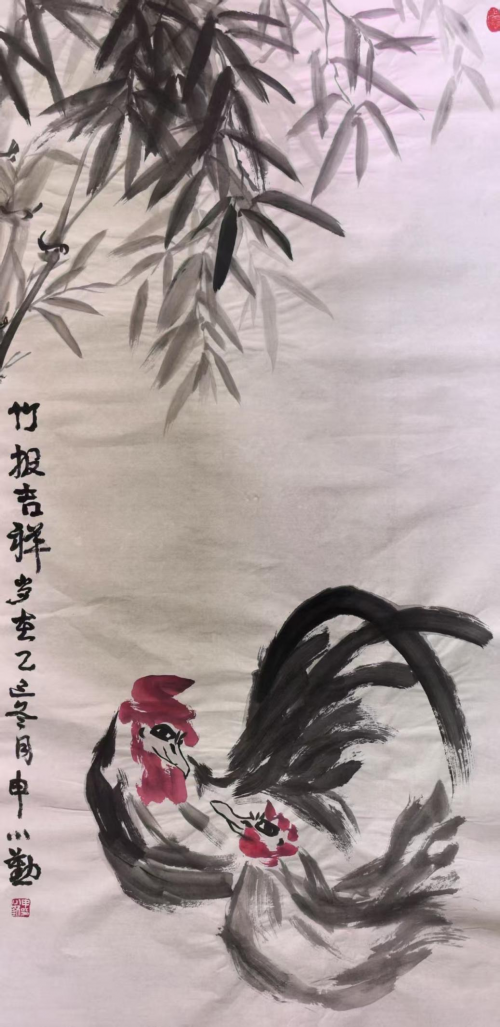 竹报吉祥岁在乙巳冬月申小勤